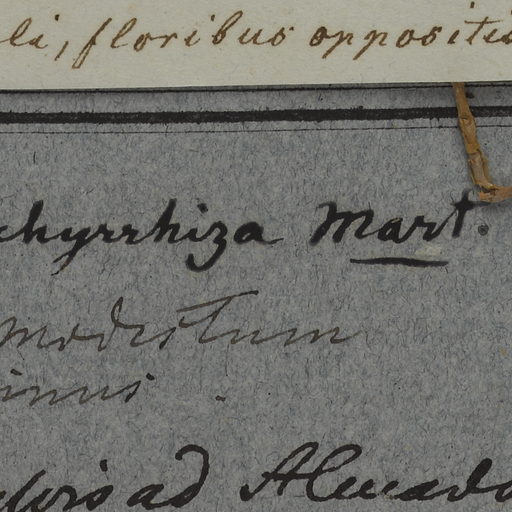 li, floribus oppositi
chyrrhiza Mart.
modestum
inus .
ad Almada